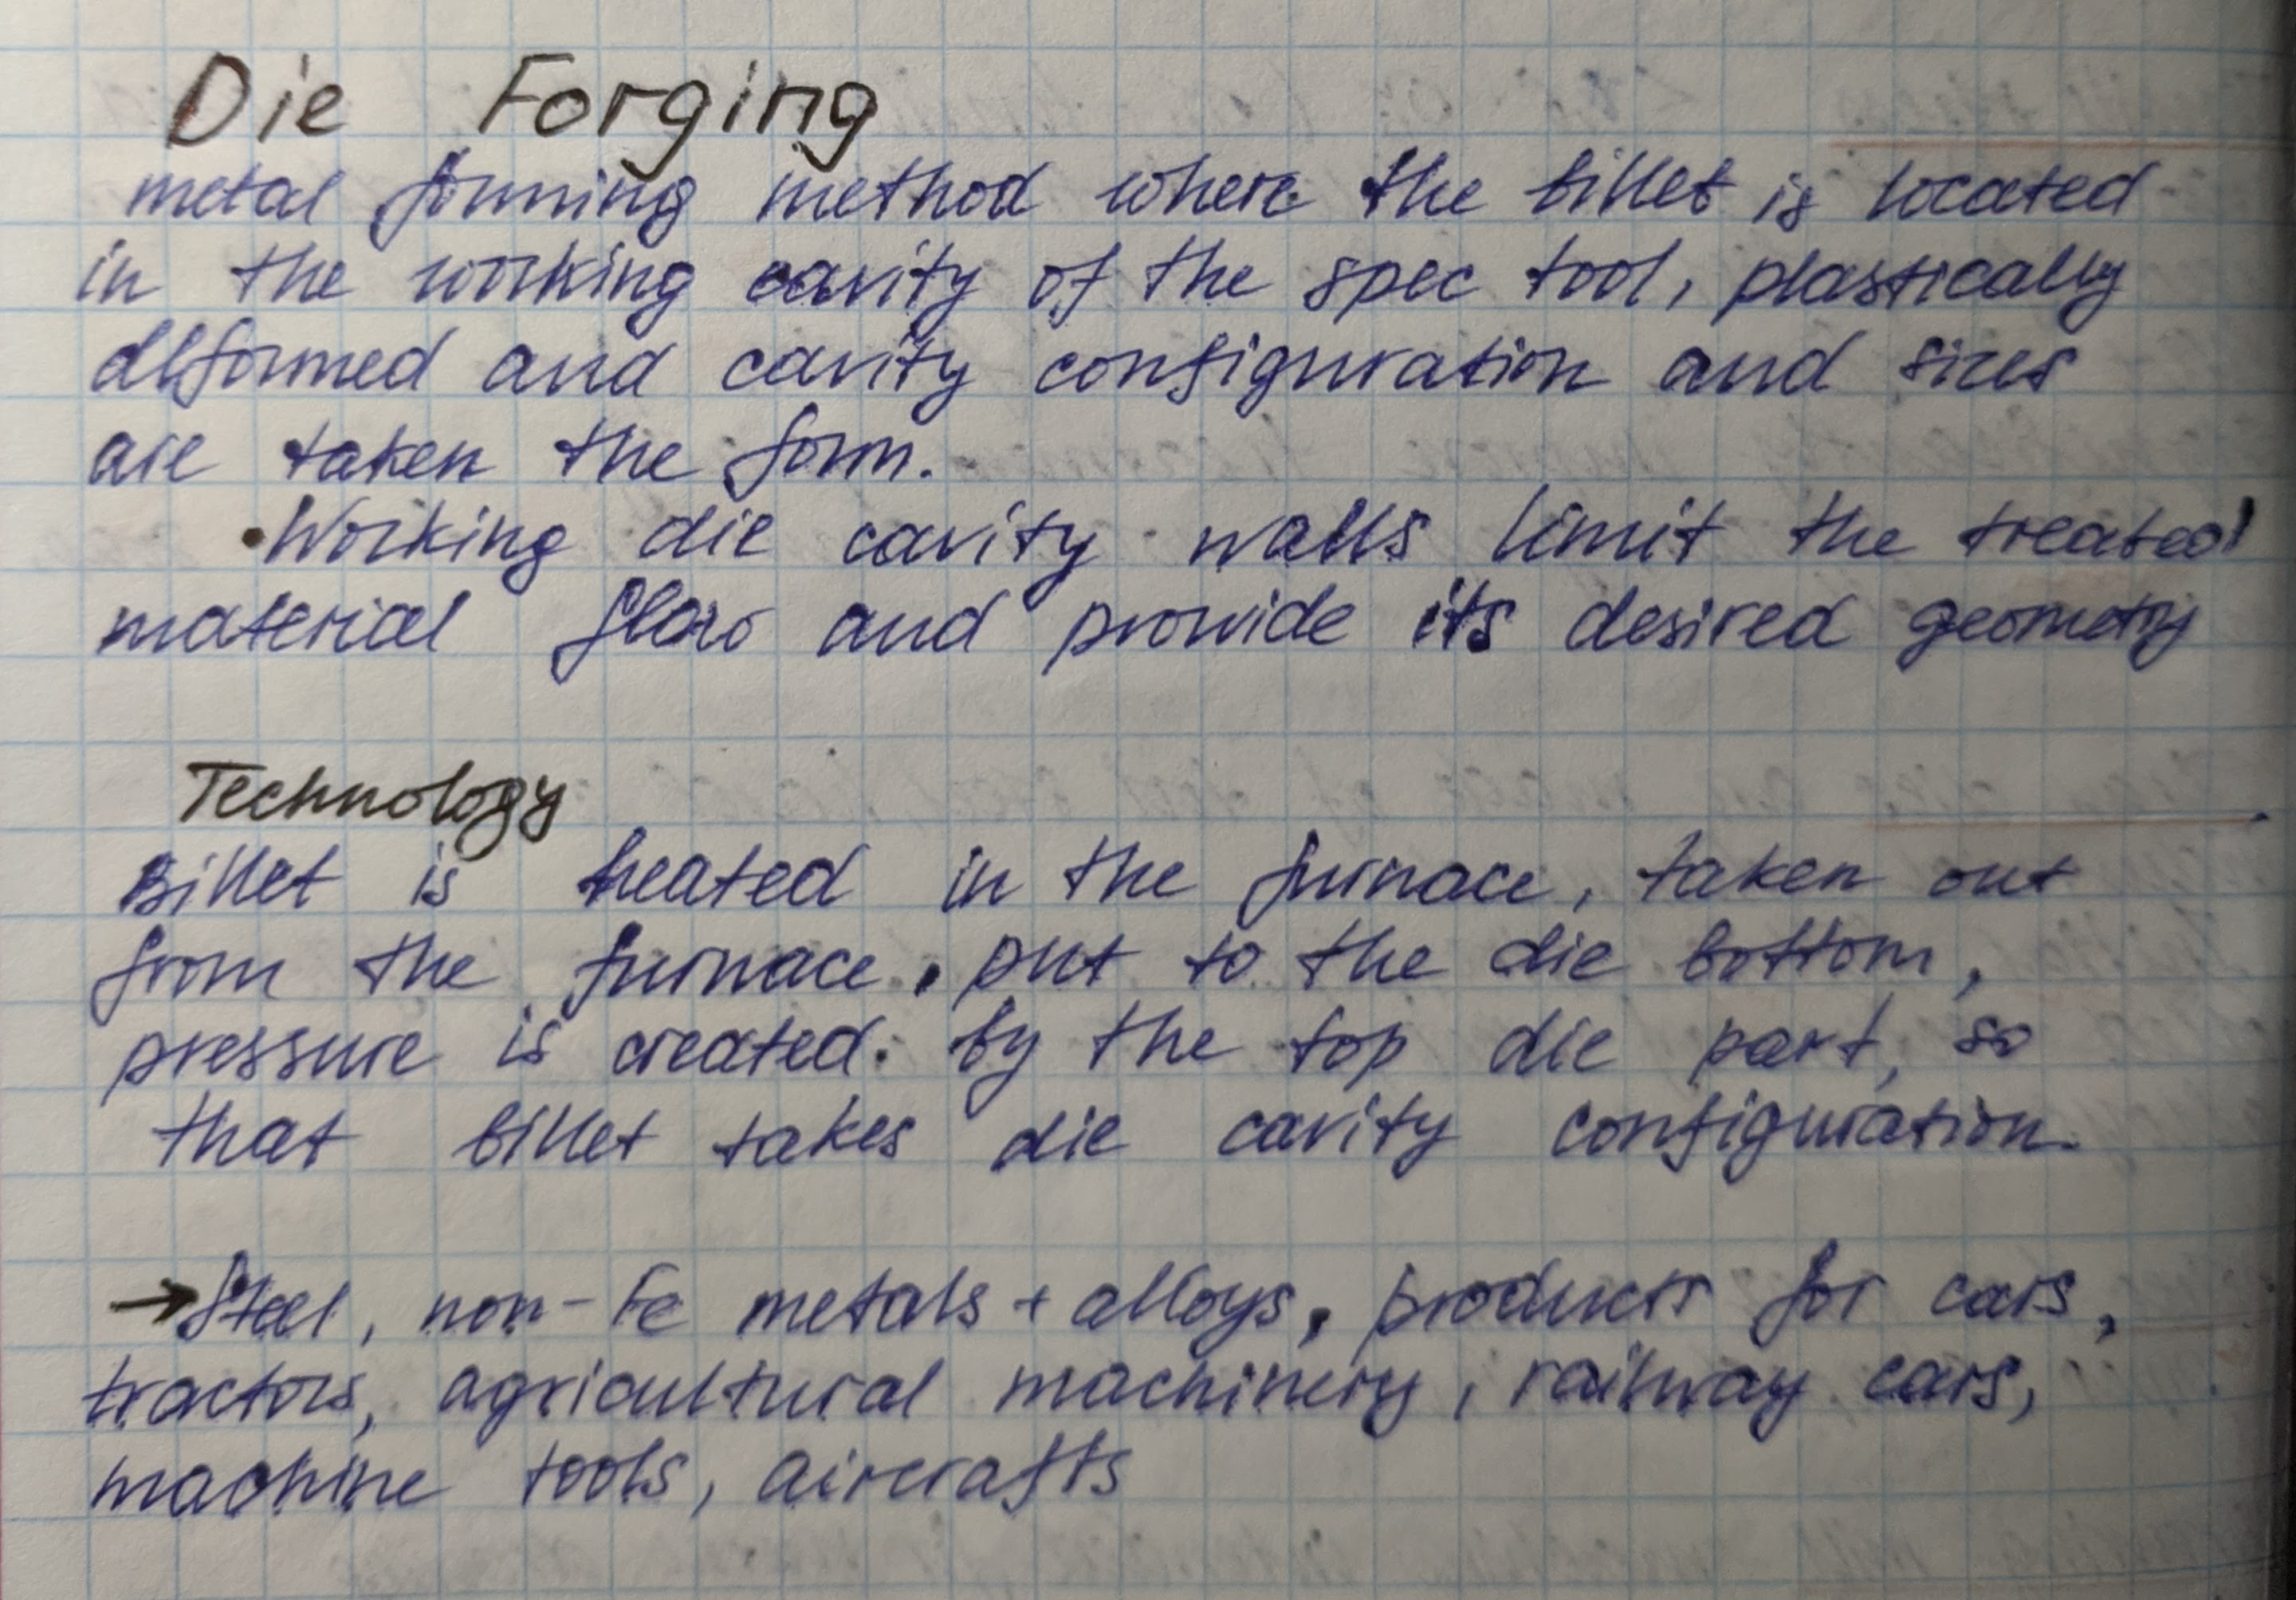 Die Forging
metal forming method where the billet is located
in the working cavity of the spec tool, plastically
deformed and cavity configuration and sizes
are taken the form.
• Working die cavity walls limit the treated
material flow and provide its desired geometry
Technology
Billet is heated in the furnace, taken out
from the furnace, put to the die bottom,
pressure is created by the top die part, so
that billet takes die cavity configuration.
→ Steel, non-Fe metals + alloys, products for cars,
tractors, agricultural machinery, railway cars,
machine tools, aircrafts